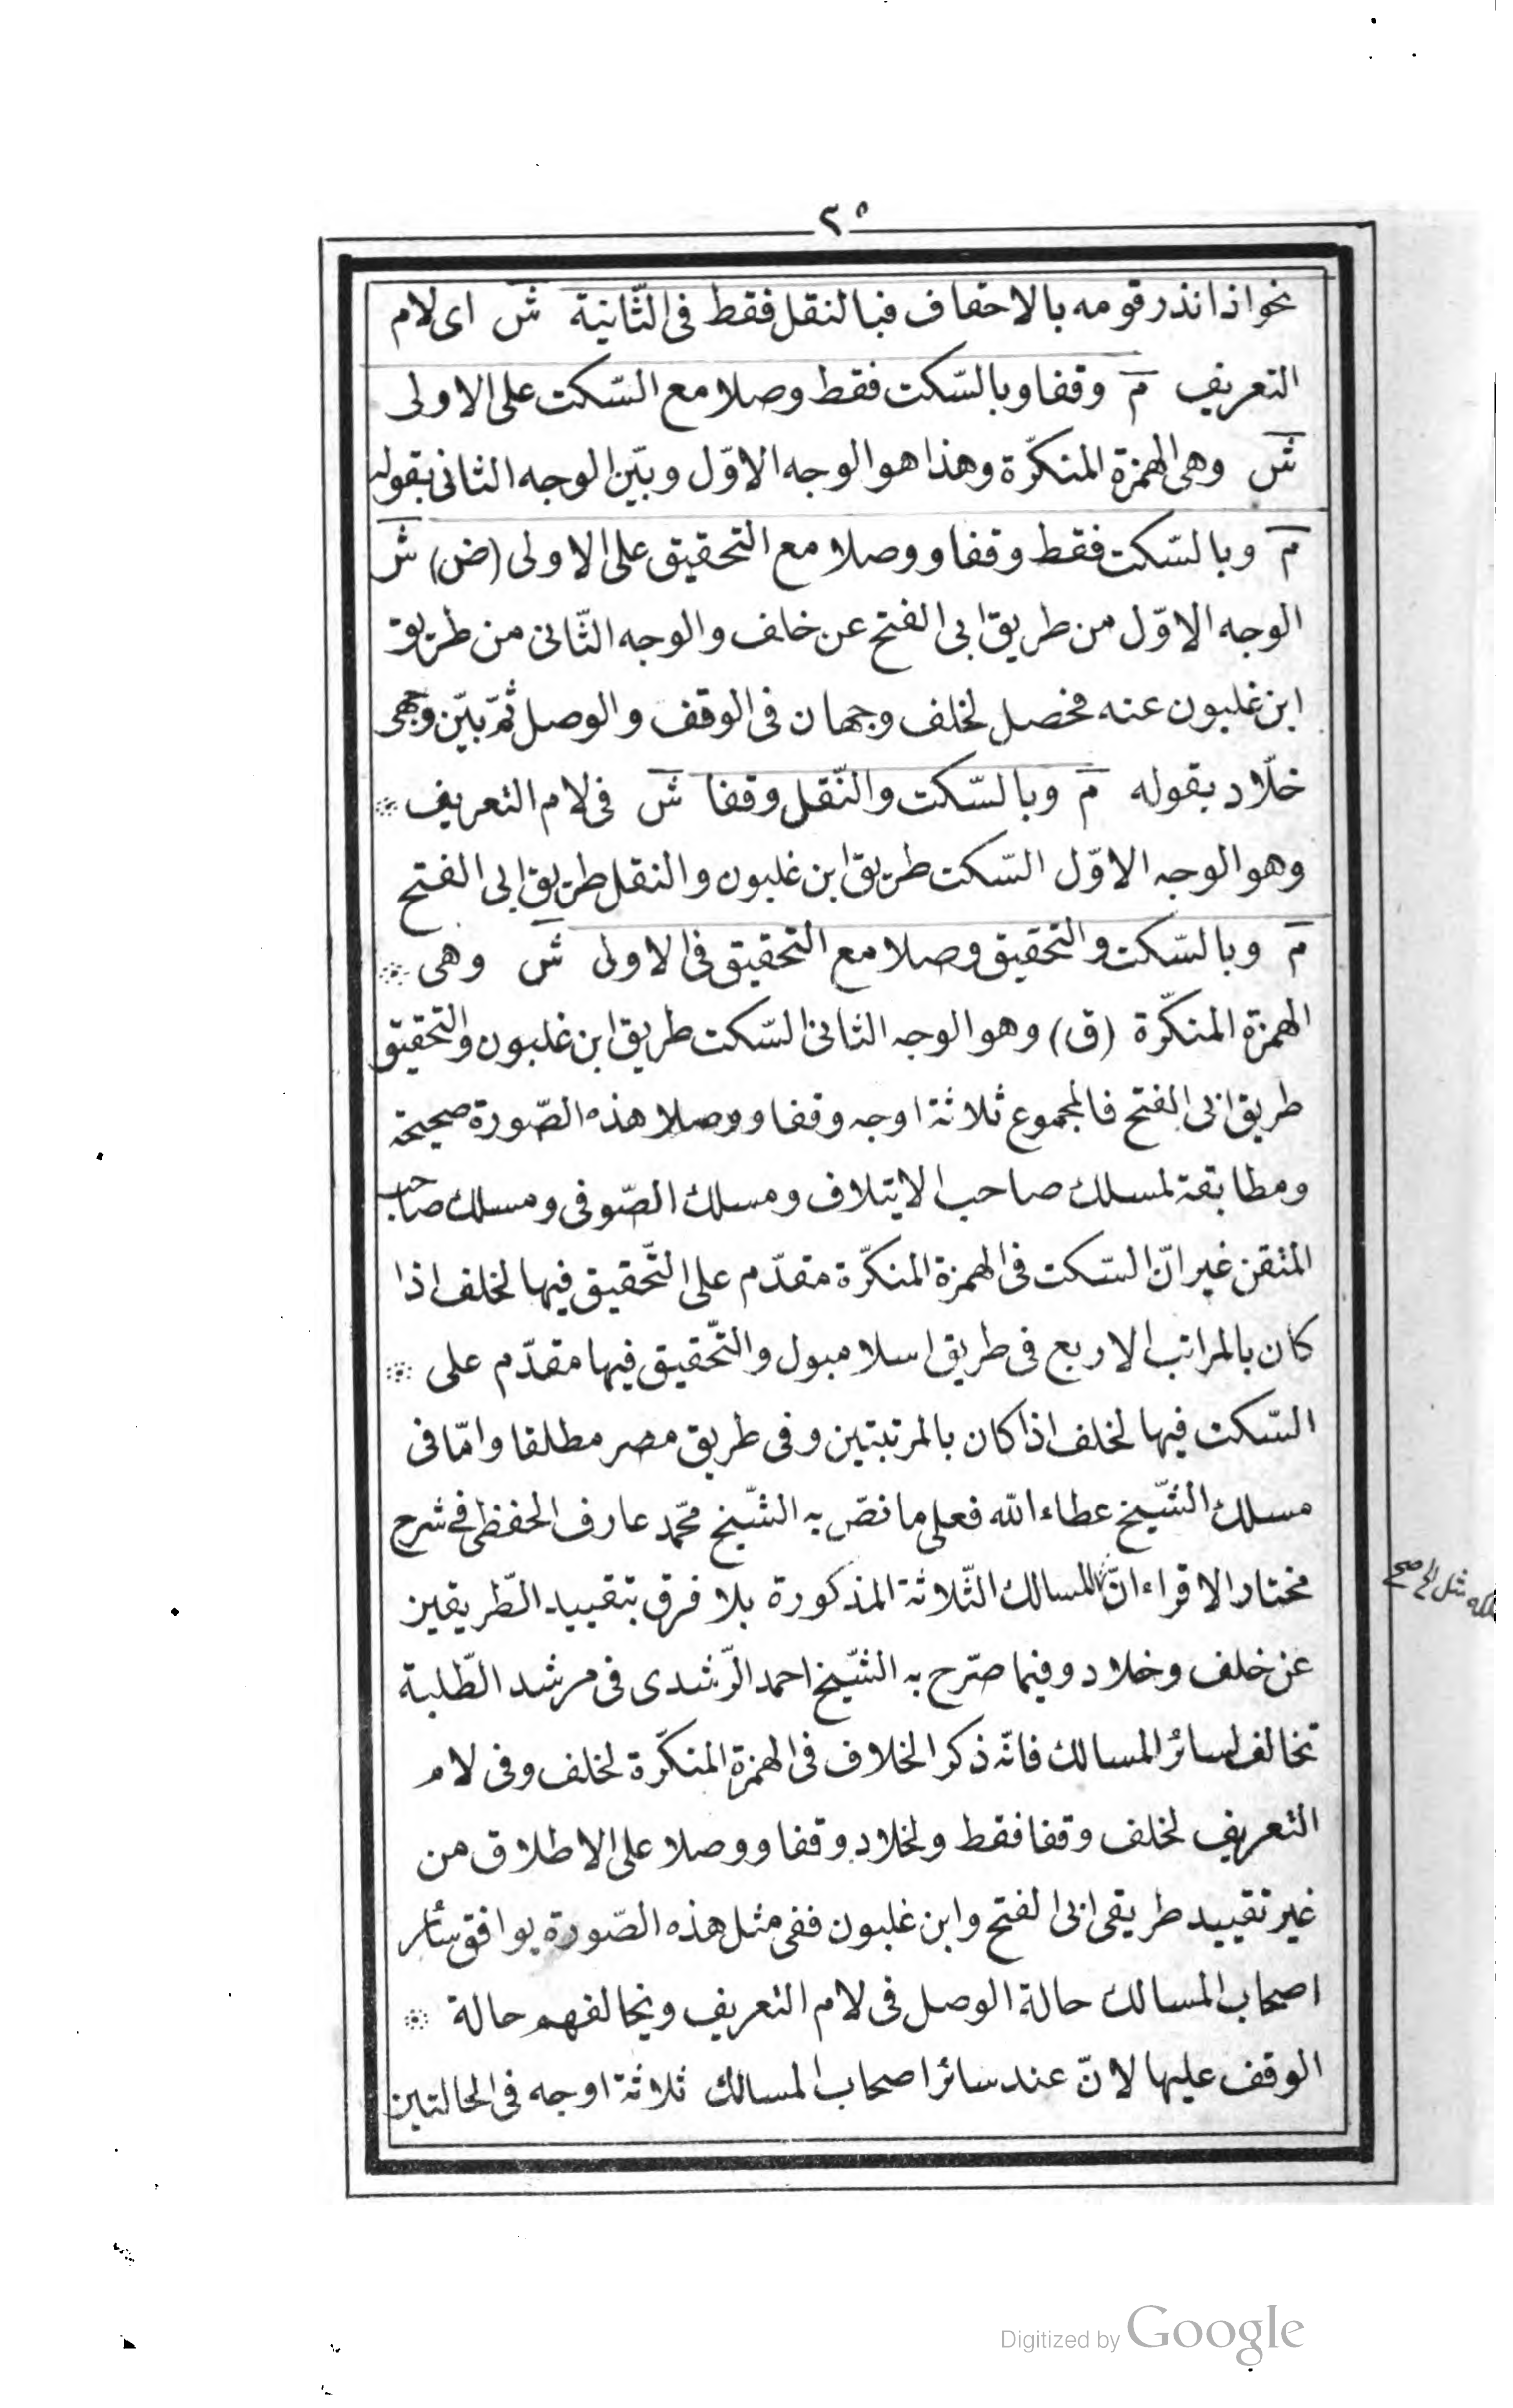 ٢٥
نحو اذ انذر قومه بالاحقاف فبالنقل فقط فى الثّانية ش اى لام
التعريف م وقفا وبالسّكت فقط وصلا مع السّكت على الاولى
ش وهى الهمزة المنكّرة وهذا هو الوجه الاوّل وبيّن الوجه الثانى بقوله
م وبالسّكت فقط وقفا ووصلا مع التحقيق على الاولى (ض) ش
الوجه الاوّل من طريق ابى الفتح عن خلف والوجه الثّانى من طريق
ابن غلبون عنه فحصل لخلف وجهان فى الوقف والوصل ثمّ بيّن وجهى
خلّاد بقوله م وبالسّكت والنّقل وقفا ش فى لام التعريف
وهو الوجه الاوّل السّكت طريق ابن غلبون والنقل طريق ابى الفتح
م وبالسّكت والتحقيق وصلا مع التحقيق فى الاولى ش وهى
الهمزة المنكّرة (ق) وهو الوجه الثانى السّكت طريق ابن غلبون والتحقيق
طريق ابى الفتح فالمجموع ثلاثة اوجه وقفا ووصلا هذه الصّورة صحيحة
ومطابقة لمسلك صاحب الايتلاف ومسلك الصّوفى ومسلك صاحب
المتقن غير انّ السّكت فى الهمزة المنكّرة مقدّم على التّحقيق فيها لخلف اذا
كان بالمراتب الاربع فى طريق اسلامبول والتّحقيق فيها مقدّم على
السّكت فيها لخلف اذا كان بالمرتبتين وفى طريق مصر مطلقا وامّا فى
مسلك الشّيخ عطاء الله فعلى ما نصّ به الشّيخ محمّد عارف الحفظى فى شرح
مختار الاقراء انّ المسالك الثّلاثة المذكورة بلا فرق بتقييد الطّريقين
عن خلف وخلاد وفيما صرّح به الشّيخ احمد الرّشدى فى مرشد الطّلبة
تخالف لسائر المسالك فانّه ذكر الخلاف فى الهمزة المنكّرة لخلف وفى لام
التعريف لخلف وقفا فقط ولخلاد وقفا ووصلا على الاطلاق من
غير تقييد طريقى ابى الفتح وابن غلبون ففى مثل هذه الصّورة يوافق سائر
اصحاب المسالك حالة الوصل فى لام التعريف ويخالفهم حالة
الوقف عليها لانّ عند سائر اصحاب المسالك ثلاثة اوجه فى الحالتين
Digitized by Google